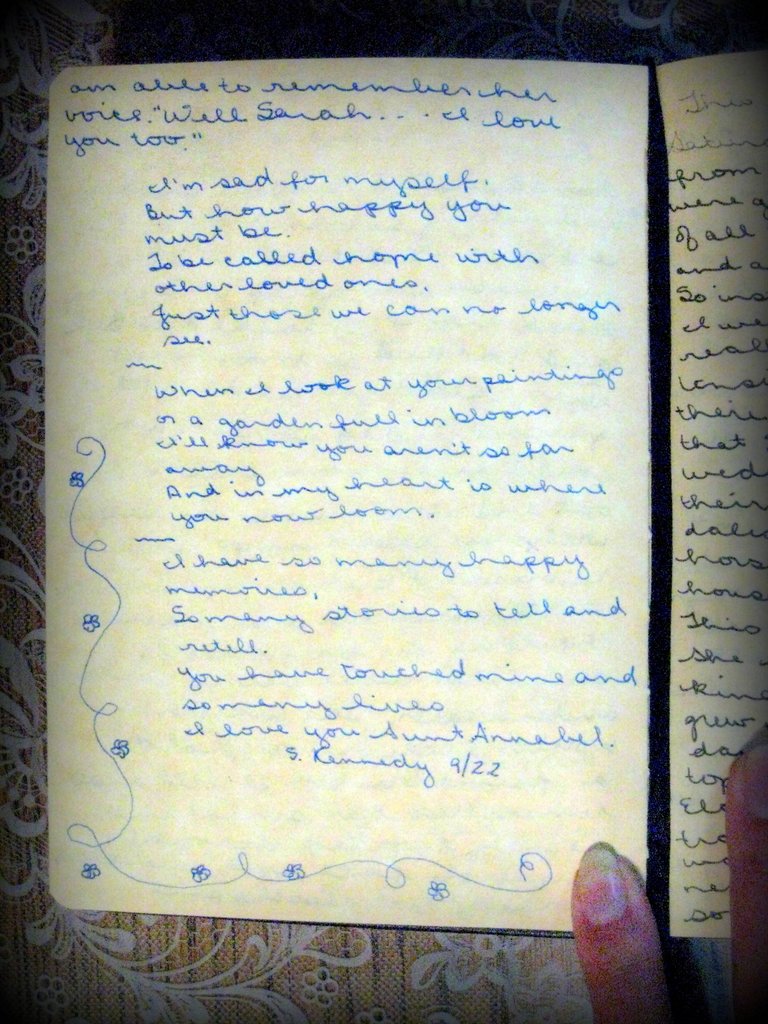 am able to remember her
voice. "Well Sarah... I love
you too."
I'm sad for myself.
But how happy you
must be.
To be called home with
other loved ones,
Just those we can no longer
see.
When I look at your paintings
or a garden full in bloom
I'll know you aren't so far
away
And in my heart is where
you now loom.
I have so many happy
memories,
So many stories to tell and
retell.
You have touched mine and
so many lives
I love you Aunt Annabel.
S. Kennedy 9/22
This
from
were
of all
and a
So
I we
real
there
that
wed
their
hors
hous
This
She
kind
grew
da
top
so